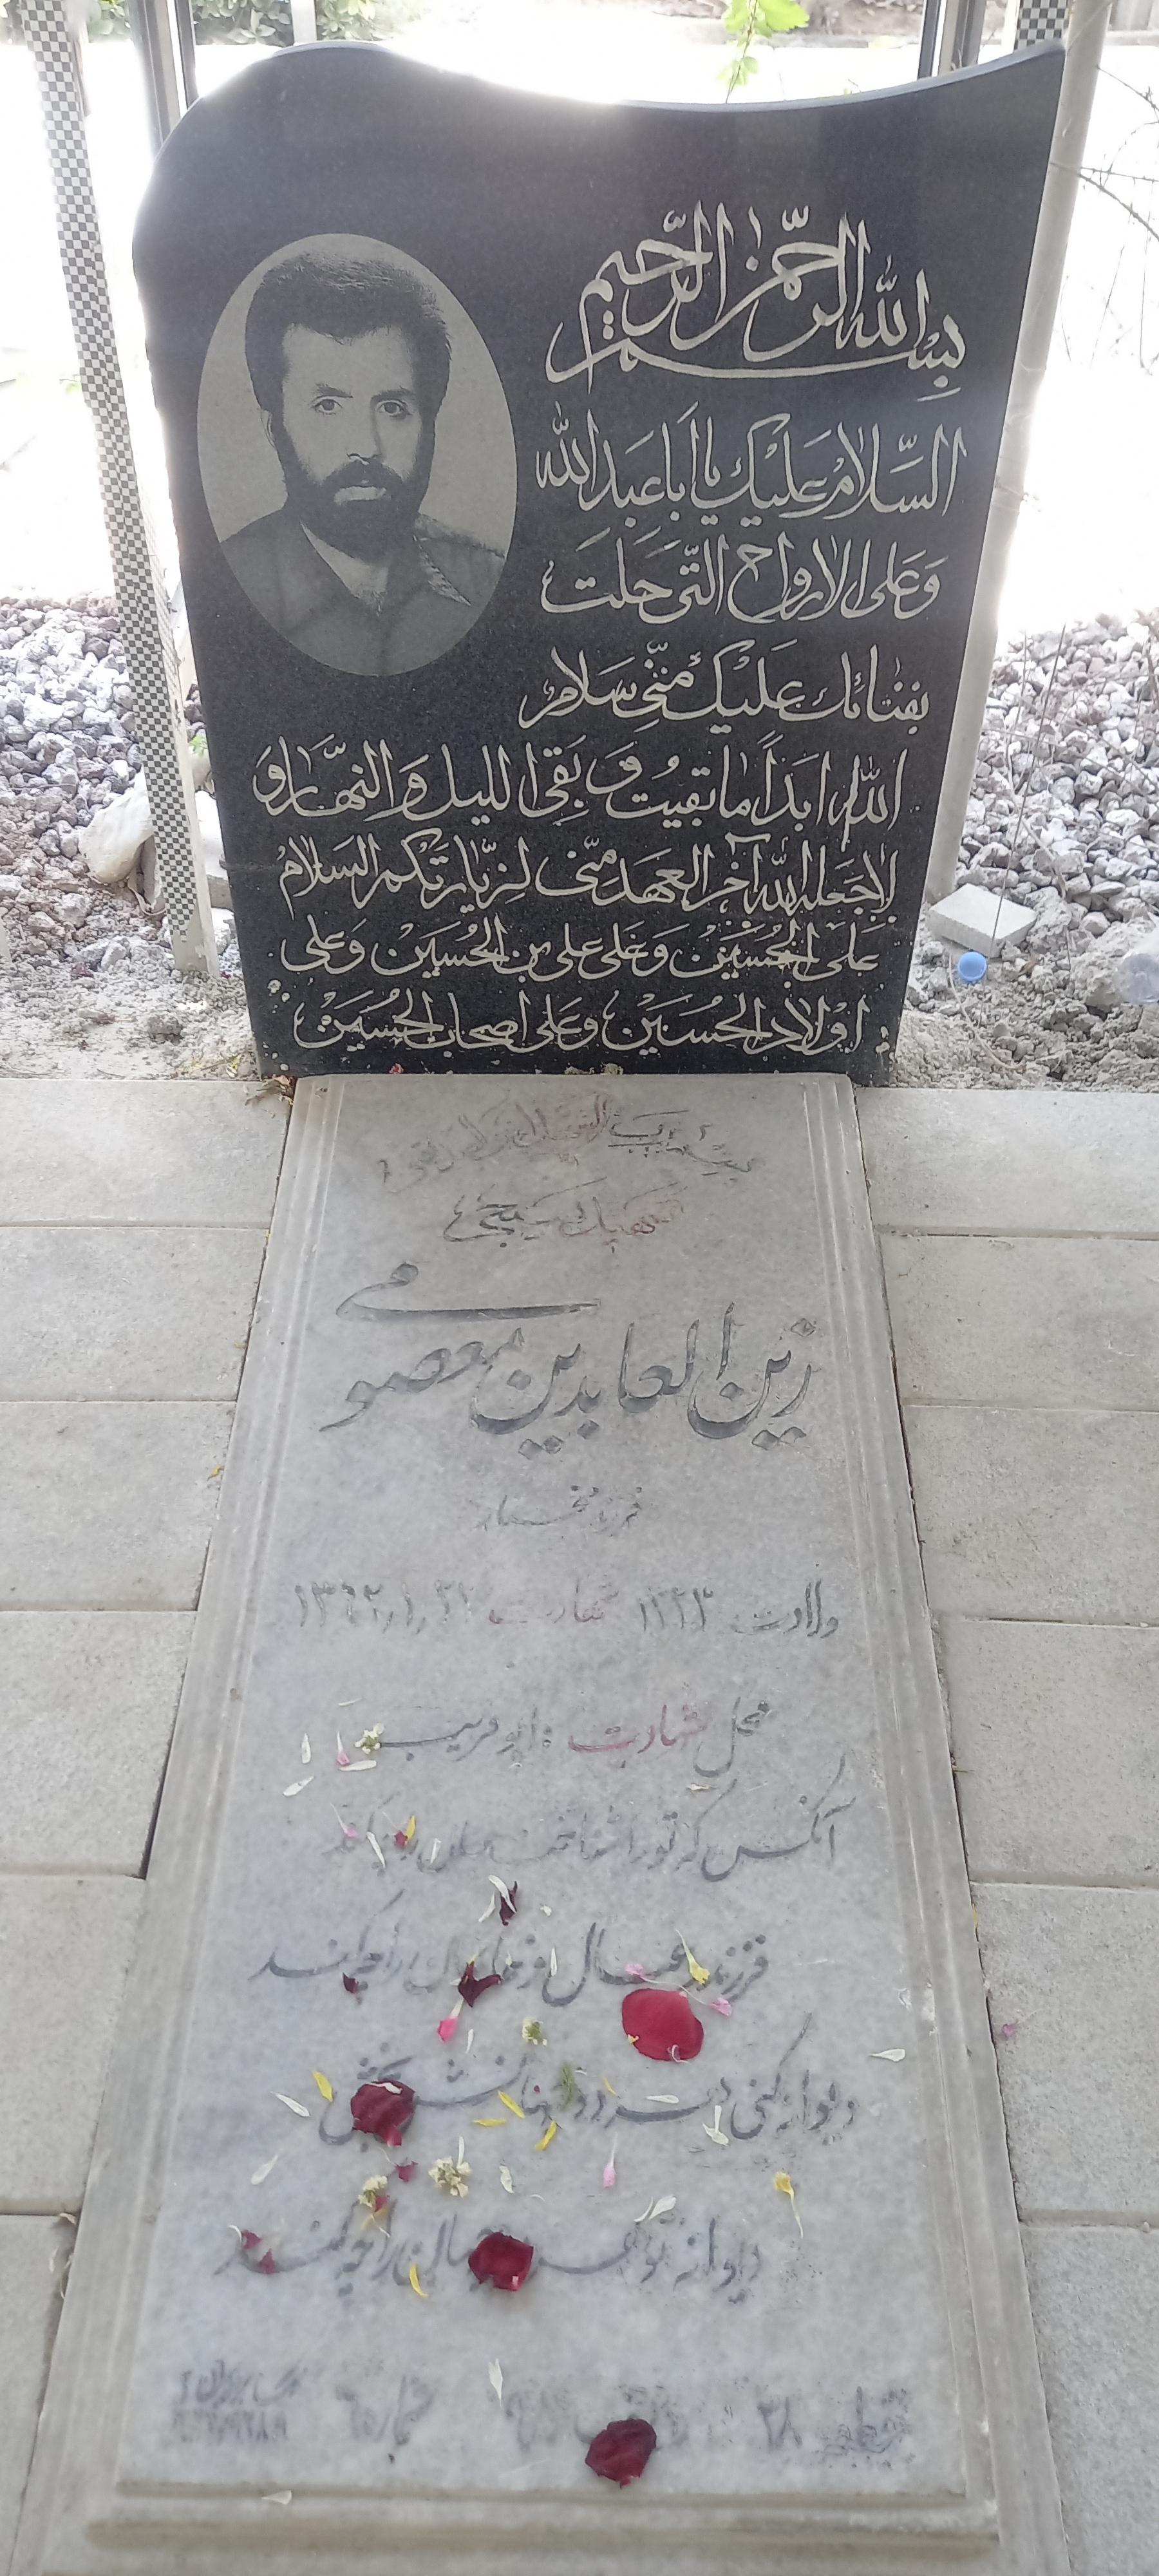 بسم الله الرحمن الرحیم
السَّلامُ عَلَیْكَ یا اَباعَبدِالله
وَعَلَی الارواحِ الَّتی حَلَّت
بفنائك عَلَیْكَ مِنّی سَلام
الله ابَداً مابقیتُ وَ بَقِیَ اللیل وَ النَّهار وَ
لاجَعله الله آخر العَهد منّی لزیارَتکم السلام
عَلی الحُسَیْن وَعَلی علی بن الحُسَیْن وَعلی
اولاد الحُسَیْن وعَلی اصحاب الحُسَین
بِسْمِ رَبِّ الشهداء
شهید
زین العابدین معصومی
فرزند
ولادت ۱۳۲۳ شهادت ۱۳۶۲،۱،۲۲
محل شهادت: ابوقریب
آنکس که تو را شناخت جان را چه کند
فرزند و عیال و خانمان را چه کند
دیوانه کنی هر دو جهانش بخشی
دیوانه تو هر دو جهان را چه کند
قطعه ۲۸ شماره